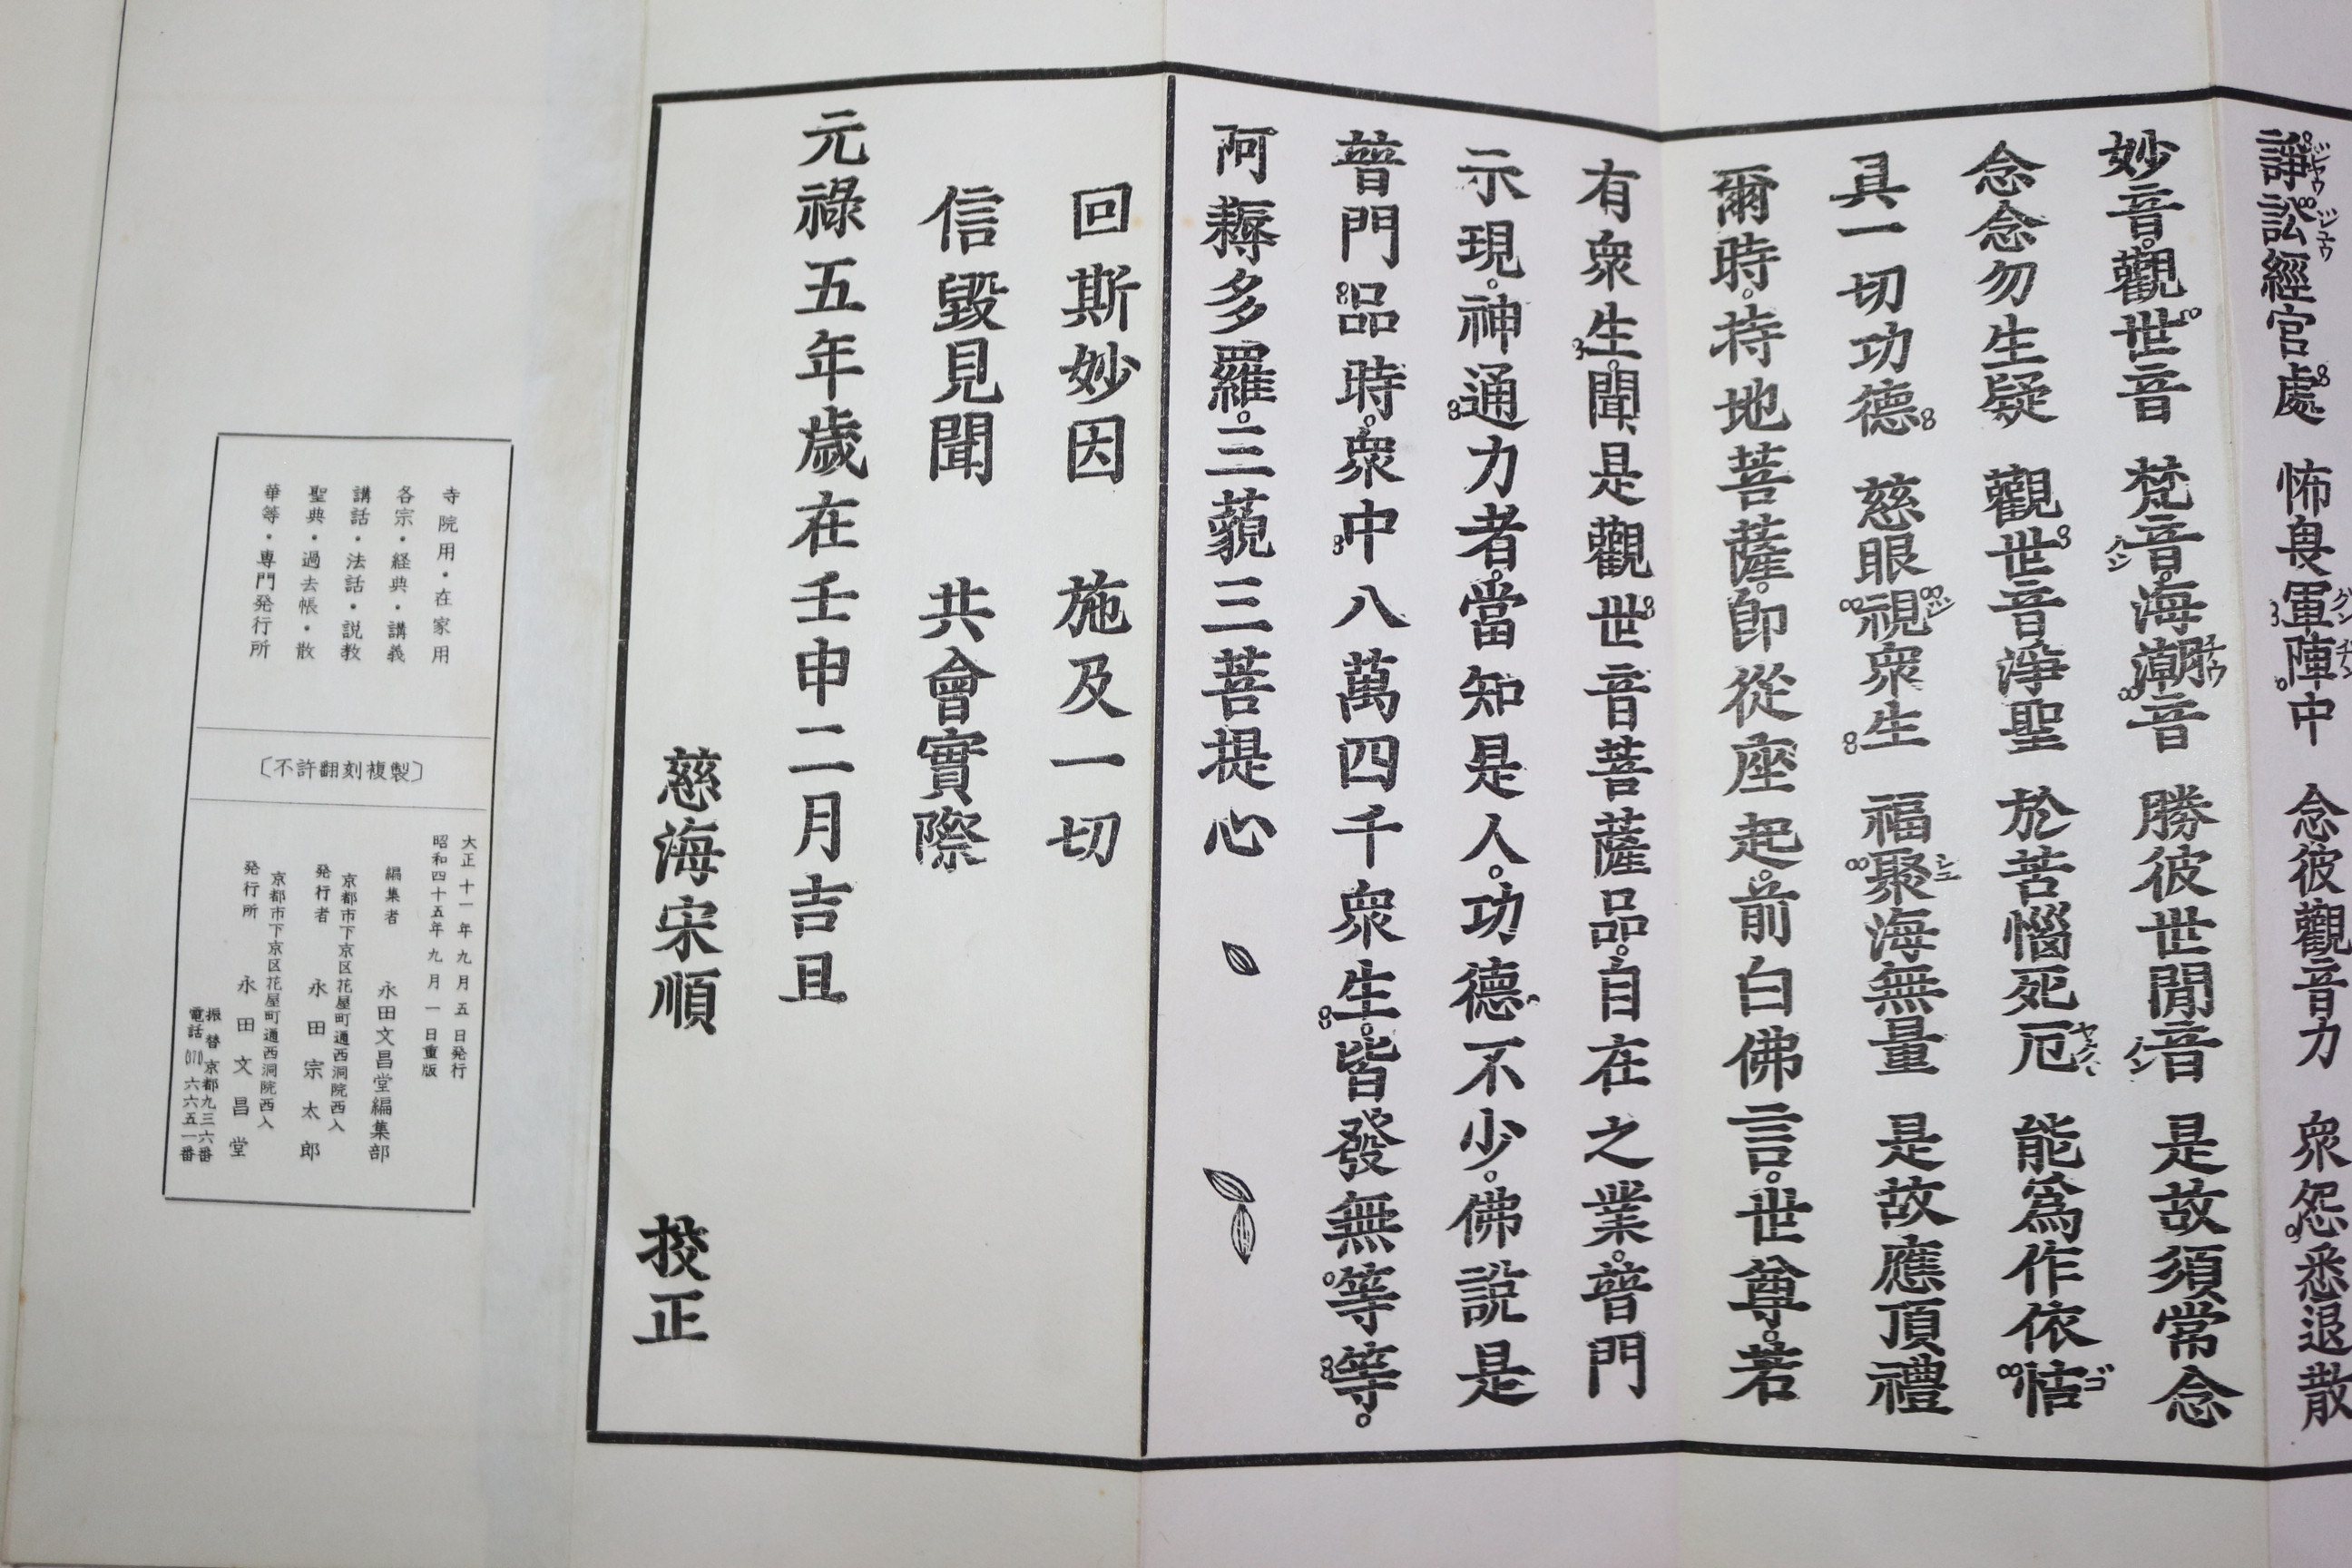 諍訟經官處　怖畏軍陣中　念彼觀音力　衆怨悉退散
妙音觀世音　梵音海潮音　勝彼世間音　是故須常念
念念勿生疑　觀世音淨聖　於苦惱死厄　能爲作依怙
具一切功德　慈眼視衆生　福聚海無量　是故應頂禮
爾時。持地菩薩。即從座起。前白佛言。世尊。若
有衆生。聞是觀世音菩薩品。自在之業。普門
示現。神通力者。當知是人。功德不少。佛說是
普門品時。衆中八萬四千衆生。皆發無等等。
阿耨多羅。三藐三菩提心
回斯妙因　施及一切
信毀見聞　共會實際
元祿五年歲在壬申二月吉旦
慈海宋順　挍正
寺院用・在家用
各宗・経典・講義
講話・法話・説教
聖典・過去帳・散
華等・専門発行所
〔不許翻刻複製〕
大正十一年九月五日発行
昭和四十五年九月一日重版
編集者　永田文昌堂編集部
京都市下京区花屋町通西洞院西入
発行者　永田宗太郎
京都市下京区花屋町通西洞院西入
発行所　永田文昌堂
振替京都九三六番
電話(371)六六五一番